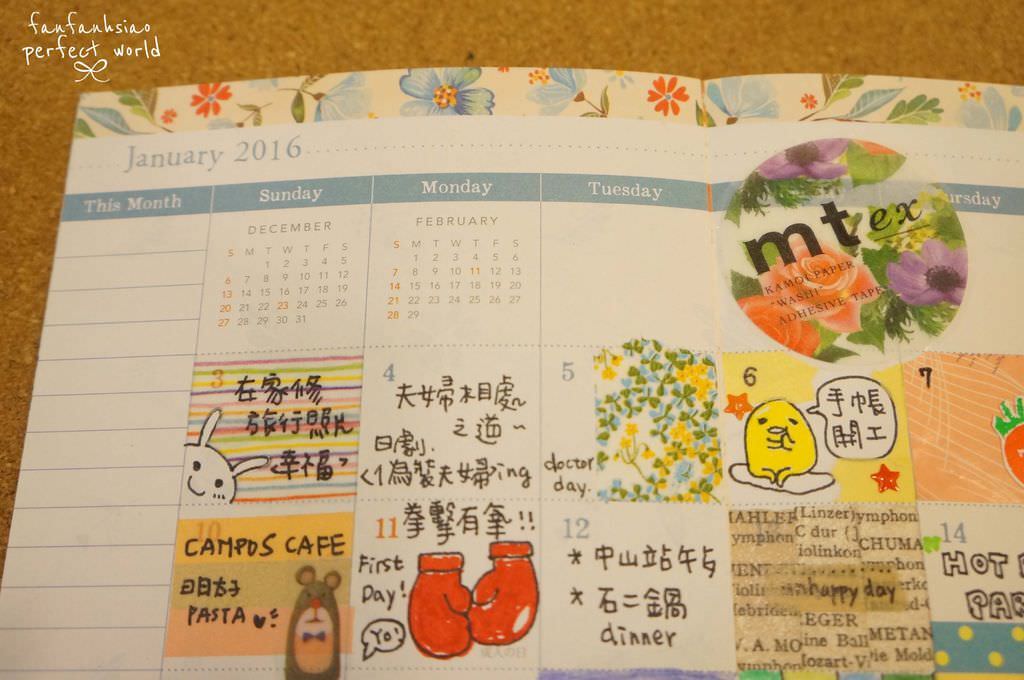 fanfanhsiao
perfect world
January 2016
This Month
Sunday
Monday
Tuesday
ursday
DECEMBER
S M T W T F S
1 2 3 4 5
6 7 8 9 10 11 12
13 14 15 16 17 18 19
20 21 22 23 24 25 26
27 28 29 30 31
FEBRUARY
S M T W T F S
1 2 3 4 5 6
7 8 9 10 11 12 13
14 15 16 17 18 19 20
21 22 23 24 25 26 27
28 29
mt ex
KAMOI PAPER
"WASHI"
ADHESIVE TAPE
3
在家修
旅行照片
幸福
4
夫婦相處
之道~
日劇.
<偽裝夫婦ing
5
doctor
day.
6
手帳
開工
7
10
CAMPOS CAFE
PASTA
11
拳擊有筆!!
First
Day!
Yo!
成人の日
12
* 中山站午与
* 石二鍋
dinner
MAHLER (Linzer) ymphon
ymphon C dur {
iolinkon CHUMA
happy day
EGER
V. A. MO ine Ball METAN
ymphon ozart-V ie Mold
14
HOT
PAR